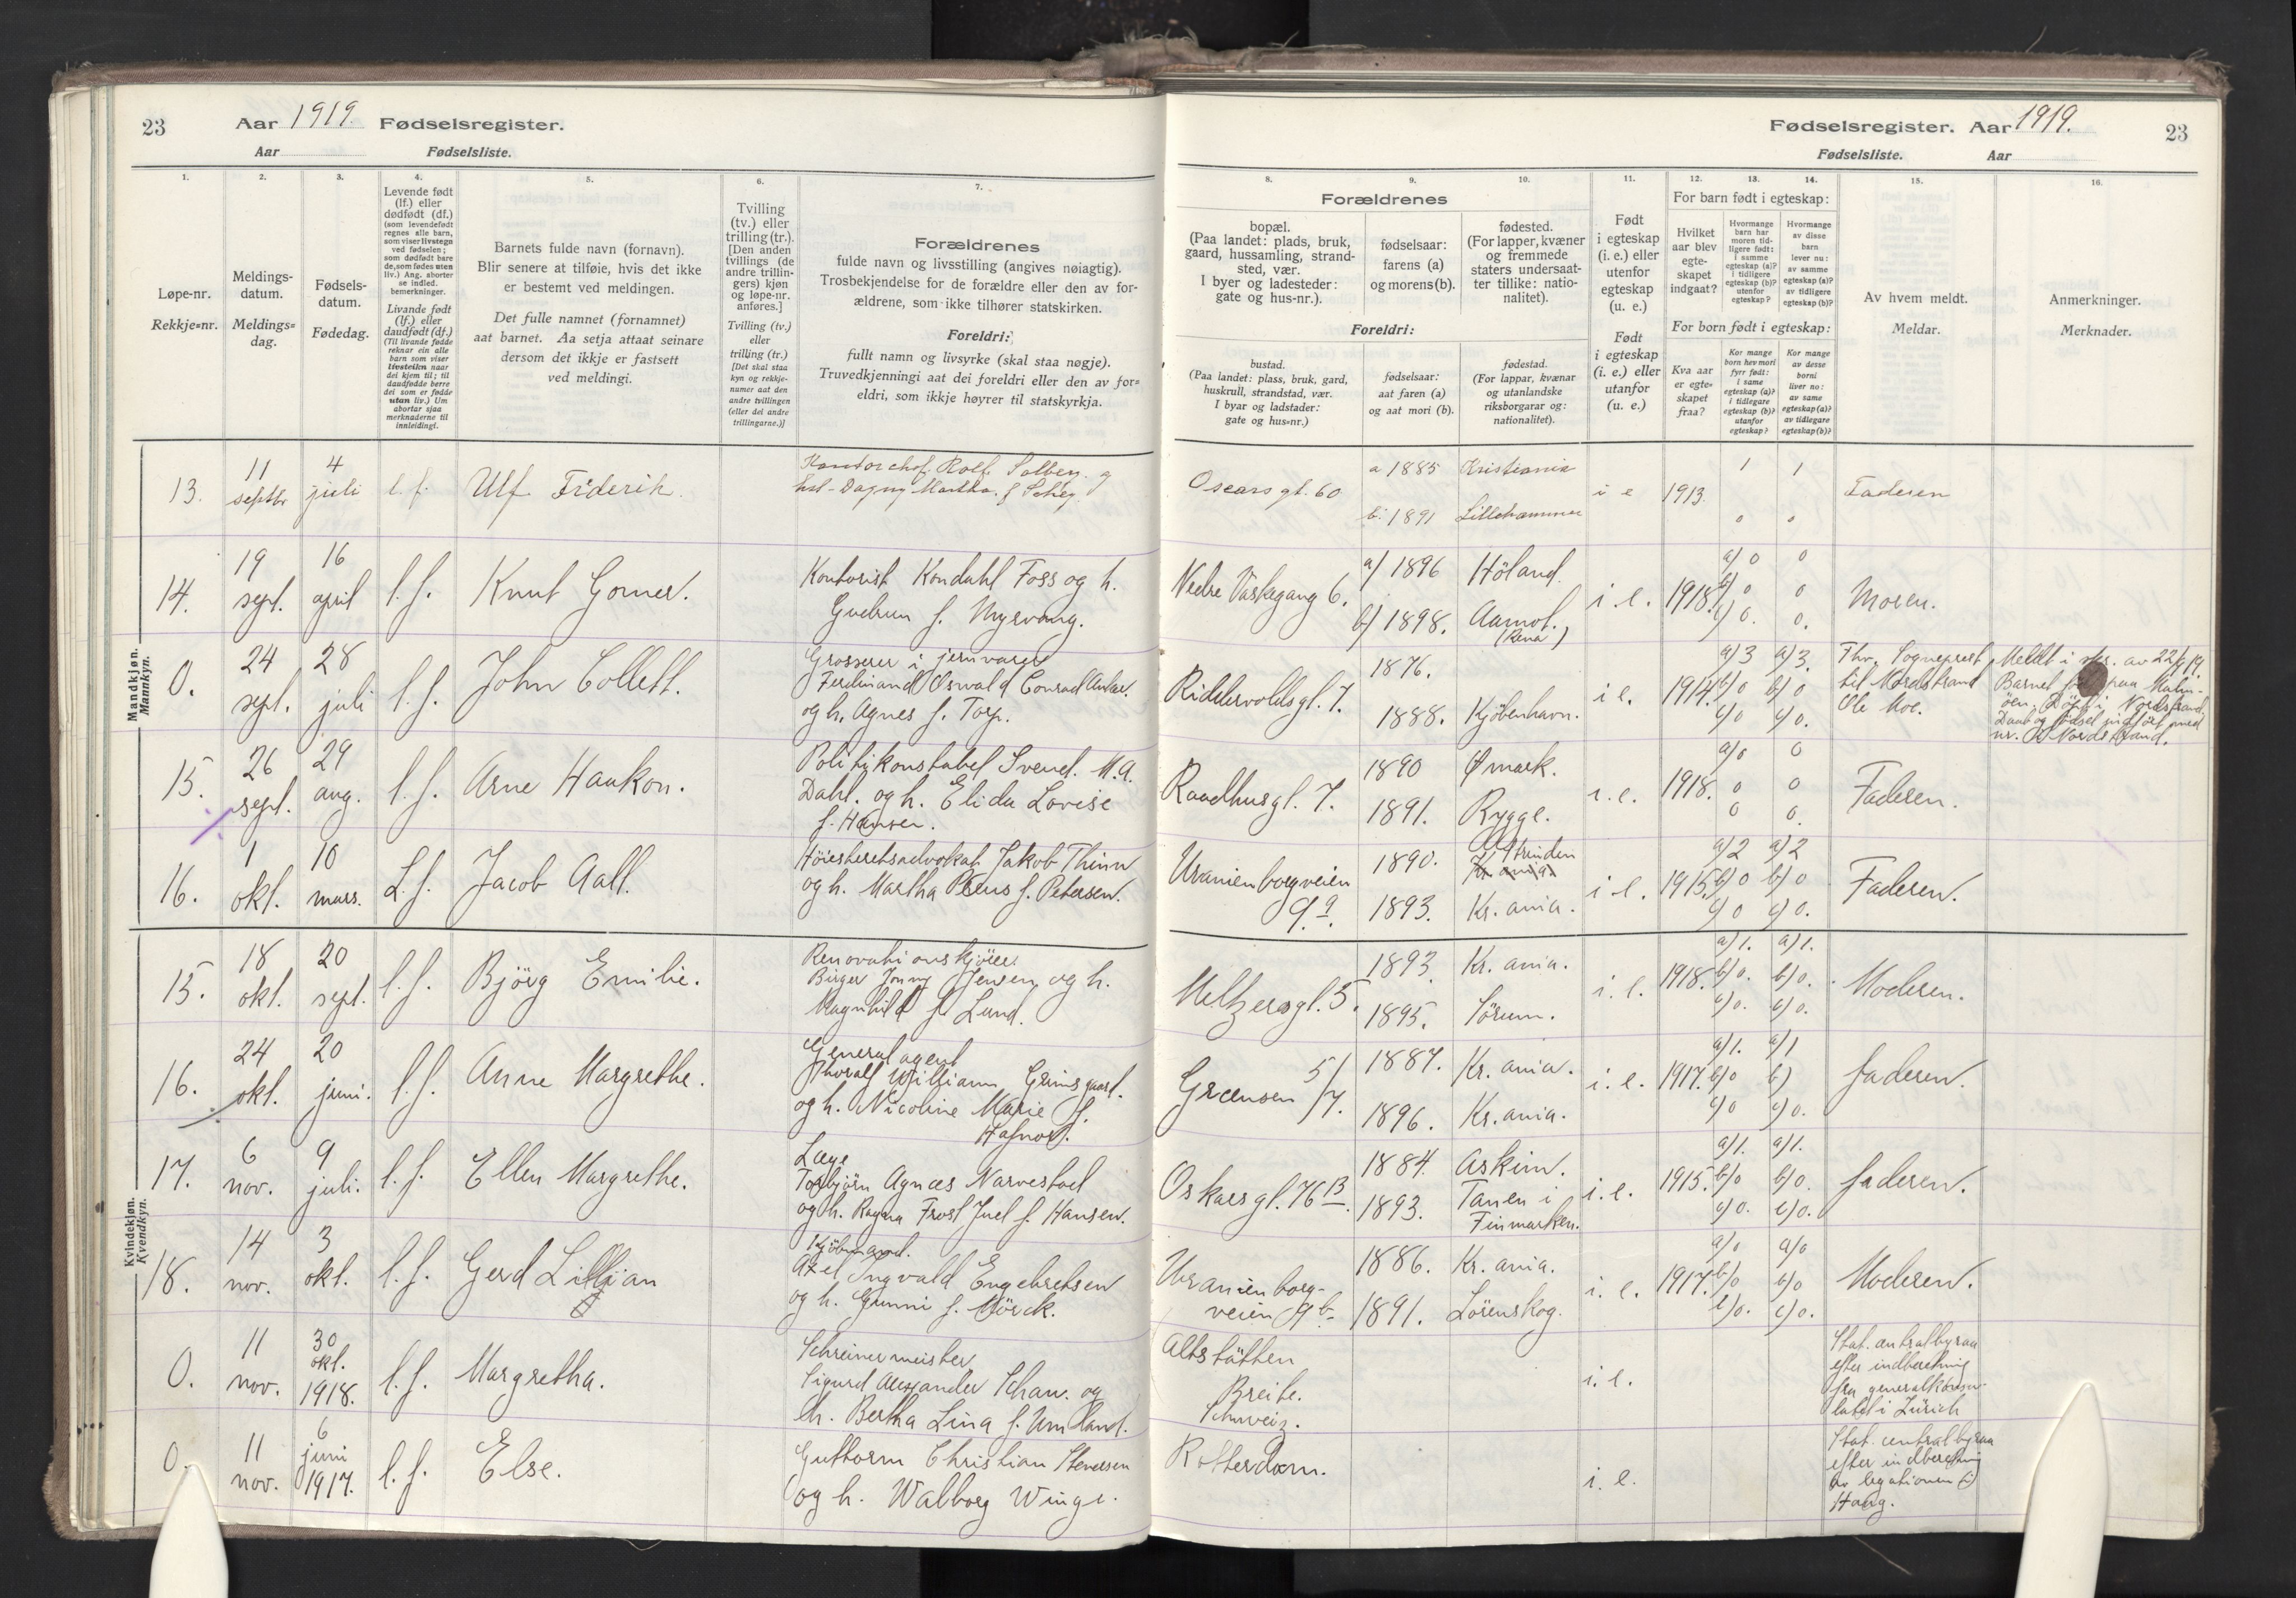 23 Aar 1919. Fødselsregister.
Aar Fødselsliste.
1.
Løpe-nr.
Rekkje=nr.
2.
Meldings-
datum.
Meldings=
dag.
3.
Fødsels-
datum.
Fødedag.
4.
Levende født
(lf.) eller
dødfødt (df.)
(som levendefødt
regnes alle barn,
som viser livstegn
ved fødselen;
som dødfødt bare
de, som fødes uten
liv.) Ang. aborter
se indled.
bemerkninger.
Livande født
(lf.) eller
daudfødt (df.)
(Til livande fødde
reknar ein alle
barn som viser
livsteikn naar
dei kjem til; til
daudfødde berre
dei som er fødde
utan liv.) Um
abortar sjaa
merknaderne til
innleidingi.
5.
Barnets fulde navn (fornavn).
Blir senere at tilføie, hvis det ikke
er bestemt ved meldingen.
Det fulle namnet (fornamnet)
aat barnet. Aa setja attaat seinare
dersom det ikkje er fastsett
ved meldingi.
6.
Tvilling
(tv.) eller
trilling (tr.).
[Den anden
tvillings (de
andre trillin-
gers) kjøn
og løpe-nr.
anføres.]
Tvilling (tv.)
eller
trilling (tr.)
[Det skal staa
kyn og rekkje-
numer aat den
andre tvillingen
(eller dei andre
trillingarne.)]
7.
Forældrenes
fulde navn og livsstilling (angives nøiagtig).
Trosbekjendelse for de forældre eller den av for-
ældrene, som ikke tilhører statskirken.
Foreldri:
fullt namn og livsyrke (skal staa nøgje).
Truvedkjenningi aat dei foreldri eller den av for=
eldri, som ikkje høyrer til statskyrkja.
Mandkjøn.
Mannkyn.
13. 11 septbr 4 juli l. f. Ulf Friderik.
Kontorchef Rolf Solberg og
hst. Dagny Martha f Schey
14. 19 sept. 16 april l. f. Knut Gomer.
Kontorist Kondahl Foss og h.
Gudrun f. Myrvang.
0. 24 sept. 28 juli l. f. John Collett.
Grosserer i jernvarer
Ferdinand Oswald Conrad
og h. Agnes f. Torp.
15. 26 sept. 29 aug. l. f. Arne Haakon.
Politikonstabel Svend. M. A.
Dahl. og h. Elida Lovise
f. Hansen.
16. 1 okt. 10 mars. L. f. Jacob Aall.
Höiesteretsadvokat Jakob Thinn
og h. Martha f. Petersen.
Kvindekjøn.
Kvendkyn.
15. 18 okt. 20 sept. l. f. Björg Emilie.
Renovationskjörer
Birger Jonny Jensen og h.
Ragnhild f. Lund.
16. 24 okt. 20 juni. l. f. Anne Margrethe.
Generalagent
Thoralf William Grimsgaard.
og h. Nicoline Marie f.
Hafnor.
17. 6 nov. 9 juli. l. f. Ellen Margrethe.
Læge
Torbjörn Agnæs Narvestad
og h. Ragna Frost Juel f. Hansen.
18. 14 nov. 3 okt. l. f. Gerd Lillian
Kjöbmand.
Axel Ingvald Engebretsen
og h. Gunni f. Mörck.
0. 11 nov. 30 okt. 1918. l. f. Margretha.
Schreinermeister
Sigurd Alexander Schau. og
h. Bertha Lina f. Umland.
0. 11 nov. 6 juni 1917. l. f. Else.
Guttorm Christian Stenersen
og h. Walborg Winge.
Fødselsregister. Aar 1919. 23
Fødselsliste. Aar
8.
Forældrenes
bopæl.
(Paa landet: plads, bruk,
gaard, hussamling, strand-
sted, vær.
I byer og ladesteder:
gate og hus-nr.).
Foreldri:
bustad.
(Paa landet: plass, bruk, gard,
huskrull, strandstad, vær.
I byar og ladstader:
gate og hus=nr.)
9.
fødselsaar:
farens (a)
og morens (b).
fødselsaar:
aat faren (a)
og aat mori (b).
10.
fødested.
(For lapper, kvæner
og fremmede
staters undersaat-
ter tillike: natio-
nalitet).
fødestad.
(For lappar, kvænar
og utanlandske
riksborgarar og:
nationalitet).
11.
Født
i egteskap
(i. e.) eller
utenfor
egteskap
(u. e.)
Født
i egteskap
(i. e.) eller
utanfor
(u. e.)
12. 13. 14.
For barn født i egteskap:
Hvilket
aar blev
egte-
skapet
indgaat?
Hvormange
barn har
moren tid-
ligere født:
i samme
egteskap (a)?
i tidligere
egteskap (b)?
utenfor
egteskap?
Hvormange
av disse
barn
lever nu:
av samme
egteskap (a)?
av tidligere
egteskap (b)?
For born født i egteskap:
Kva aar
er egte=
skapet
fraa?
Kor mange
born hev mori
fyrr født:
i same
egteskap (a)?
i tidlegare
egteskap (b)?
utanfor
egteskap?
Kor mange
av desse
borni
liver no:
av same
egteskap (a)?
av tidlegare
egteskap (b)?
15.
Av hvem meldt.
Meldar.
16.
Anmerkninger.
Merknader.
Oscars gt. 60 a 1885 Kristiania i e 1913. 1 1 Faderen
b. 1891 Lillehammer 0 0
Nedre Vaskegang 6. a) 1896 Höland. i. e. 1918. a) 0 0 Moren.
b) 0 0
b) 1898. Aamot. (Rena) c) 0. 0.
Riddervoldsgt. 7. 1876. i e. 1914. a) 3 a) 3.
b) 0 b) 0
1888. Kjöbenhavn. c) 0 c) 0.
Fhv. Sogneprest
til Nordstrand
Ole Moe.
Meldt i skr. av 22/9 19
Barnet paa Malm-
öen. Döpt i Nordstrand
Daab og födsel indfört med
nr. Nordstrand.
Raadhusgt. 7. 1890 Ømark. i. e. 1918. a) 0 0 Faderen.
0 0
1891. Rygge. 0 0.
Uranienborgveien 9a. 1890. Strinden Kr.ania. i. e. 1915. a) 2 a) 2 Faderen.
b) 0 b) 0
1893. Kr.ania. c) 0 c) 0.
Meltzersgt. 5. 1893. Kr.ania. i. e. 1918. a) 1. a) 1. Moderen.
b) 0. b) 0.
1895. Sörum. c) 0. c) 0.
Grænsen 5/7. 1887. Kr.ania. i. e. 1917. a) 1. a) 1 faderen.
b) 0 b)
1896. Kr.ania. c) 0 c) 0.
Oskarsgt. 76 B. 1884. Askim. i. e. 1915. a) 1. a) 1. faderen.
b) 0 b) 0.
1893. Tanen i Finmarken. c) 0. c) 0.
Uranienborg-
veien 9 b. 1886. Kr.ania. i. e. 1917. a) 0 a) 0 Moderen.
b) 0 b) 0
1891. Lörenskog. c) 0. c) 0.
Altstätten
Breite.
Schweiz. i. e.
Stat. centralbyraa
efter indberetning
fra generalkonsu-
latet i Zürich
Rotterdam. i. e.
Stat. centralbyraa
efter indberetning
av legationen i
Haag.